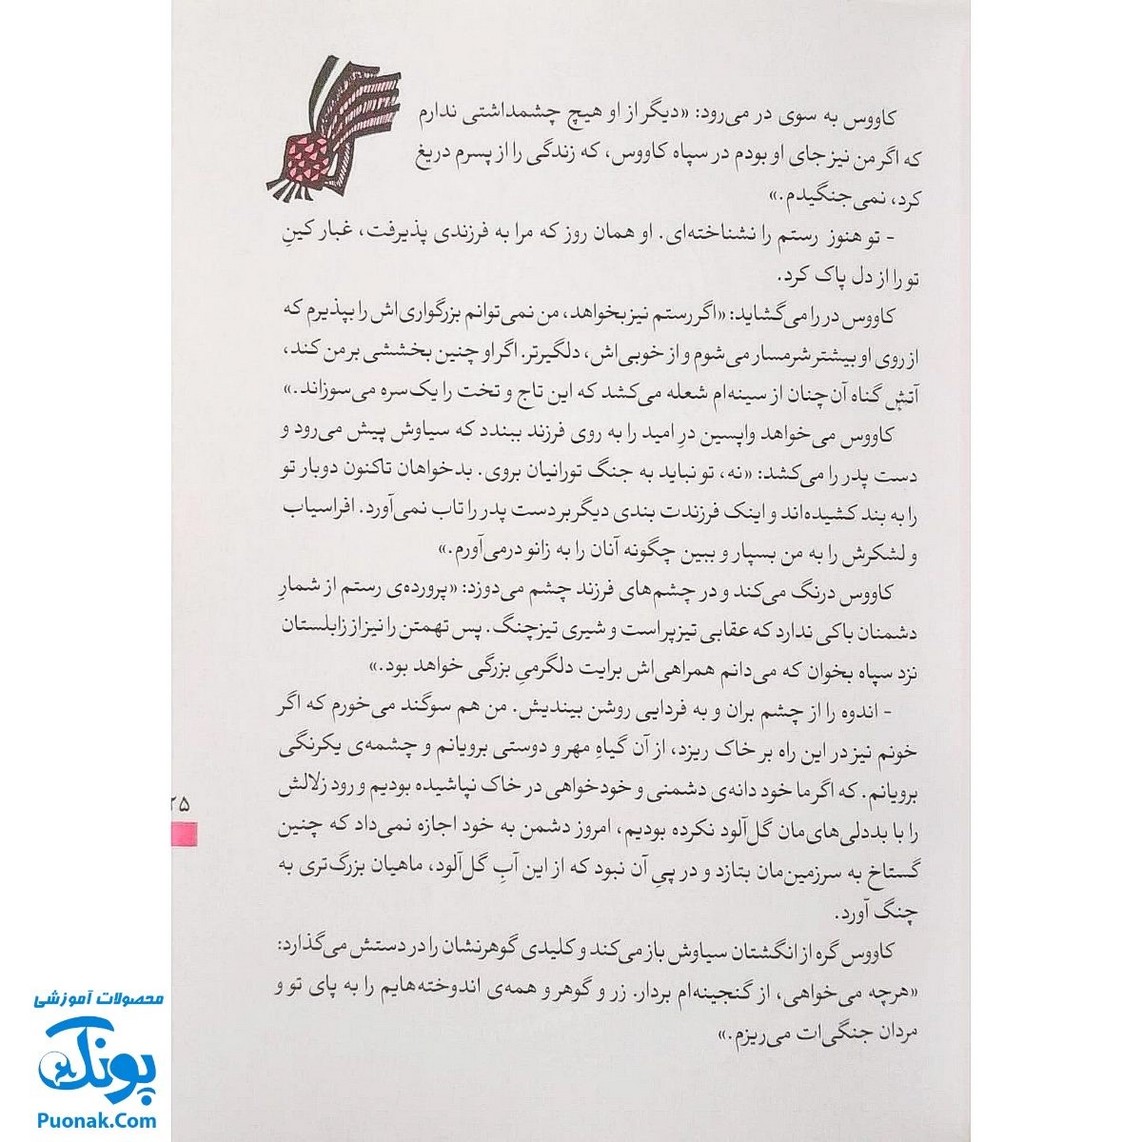 کاووس به سوی در می‌رود: «دیگر از او هیچ چشمداشتی ندارم
که اگر من نیز جای او بودم در سپاه کاووس، که زندگی را از پسرم دریغ
کرد، نمی‌جنگیدم.»
- تو هنوز رستم را نشناخته‌ای. او همان روز که مرا به فرزندی پذیرفت، غبار کینِ
تو را از دل پاک کرد.
کاووس در را می‌گشاید: «اگر رستم نیز بخواهد، من نمی‌توانم بزرگواری‌اش را بپذیرم که
از روی او بیشتر شرمسار می‌شوم و از خوبی‌اش، دلگیرتر. اگر او چنین بخششی بر من کند،
آتشِ گناه آن چنان از سینه‌ام شعله می‌کشد که این تاج و تخت را یک‌سره می‌سوزاند.»
کاووس می‌خواهد واپسین درِ امید را به روی فرزند ببندد که سیاوش پیش می‌رود و
دست پدر را می‌کشد: «نه، تو نباید به جنگ تورانیان بروی. بدخواهان تاکنون دوبار تو
را به بند کشیده‌اند و اینک فرزندت بندی دیگر بر دست پدر را تاب نمی‌آورد. افراسیاب
و لشکرش را به من بسپار و ببین چگونه آنان را به زانو درمی‌آورم.»
کاووس درنگ می‌کند و در چشم‌های فرزند چشم می‌دوزد: «پرورده‌ی رستم از شمارِ
دشمنان باکی ندارد که عقابی تیزپر است و شیری تیزچنگ. پس تهمتن را نیز از زابلستان
نزد سپاه بخوان که می‌دانم همراهی‌اش برایت دلگرمیِ بزرگی خواهد بود.»
- اندوه را از چشم بران و به فردایی روشن بیندیش. من هم سوگند می‌خورم که اگر
خونم نیز در این راه بر خاک ریزد، از آن گیاهِ مهر و دوستی برویانم و چشمه‌ی یکرنگی
برویانم. که اگر ما خود دانه‌ی دشمنی و خودخواهی در خاک نپاشیده بودیم و رود زلالش
را با بددلی‌های‌مان گل‌آلود نکرده بودیم، امروز دشمن به خود اجازه نمی‌داد که چنین
گستاخ به سرزمین‌مان بتازد و در پیِ آن نبود که از این آبِ گل‌آلود، ماهیان بزرگ‌تری به
چنگ آورد.
کاووس گره از انگشتان سیاوش باز می‌کند و کلیدی گوهرنشان را در دستش می‌گذارد:
«هرچه می‌خواهی، از گنجینه‌ام بردار. زر و گوهر و همه‌ی اندوخته‌هایم را به پای تو و
مردان جنگی‌ات می‌ریزم.»
۲۵
محصولات آموزشی
پونک
Puonak.Com